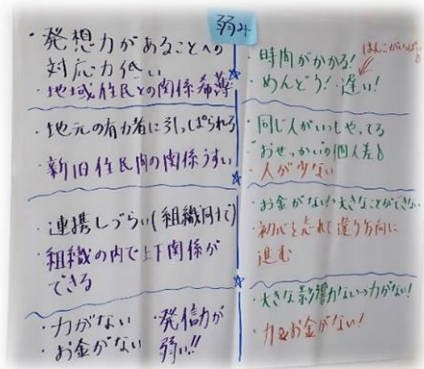 弱み
・発想力があることへの
対応力低い
・地域住民との関係希薄
・地元の有力者に引っぱられる
・新旧住民間の関係うすい
・連携しづらい(組織同士で)
・組織の内で上下関係が
できる
・力がない ・発信力が
・お金がない 弱い!!
はんこがいっぱい
・時間がかかる!
・めんどう!・遅い!
・同じ人がいつもやってる
・おせっかいの個人差
・人が少ない
・お金がない 大きなことができない
・初心を忘れて違う方向に
進む
・大きな影響力ない 力がない!
・力&お金がない!